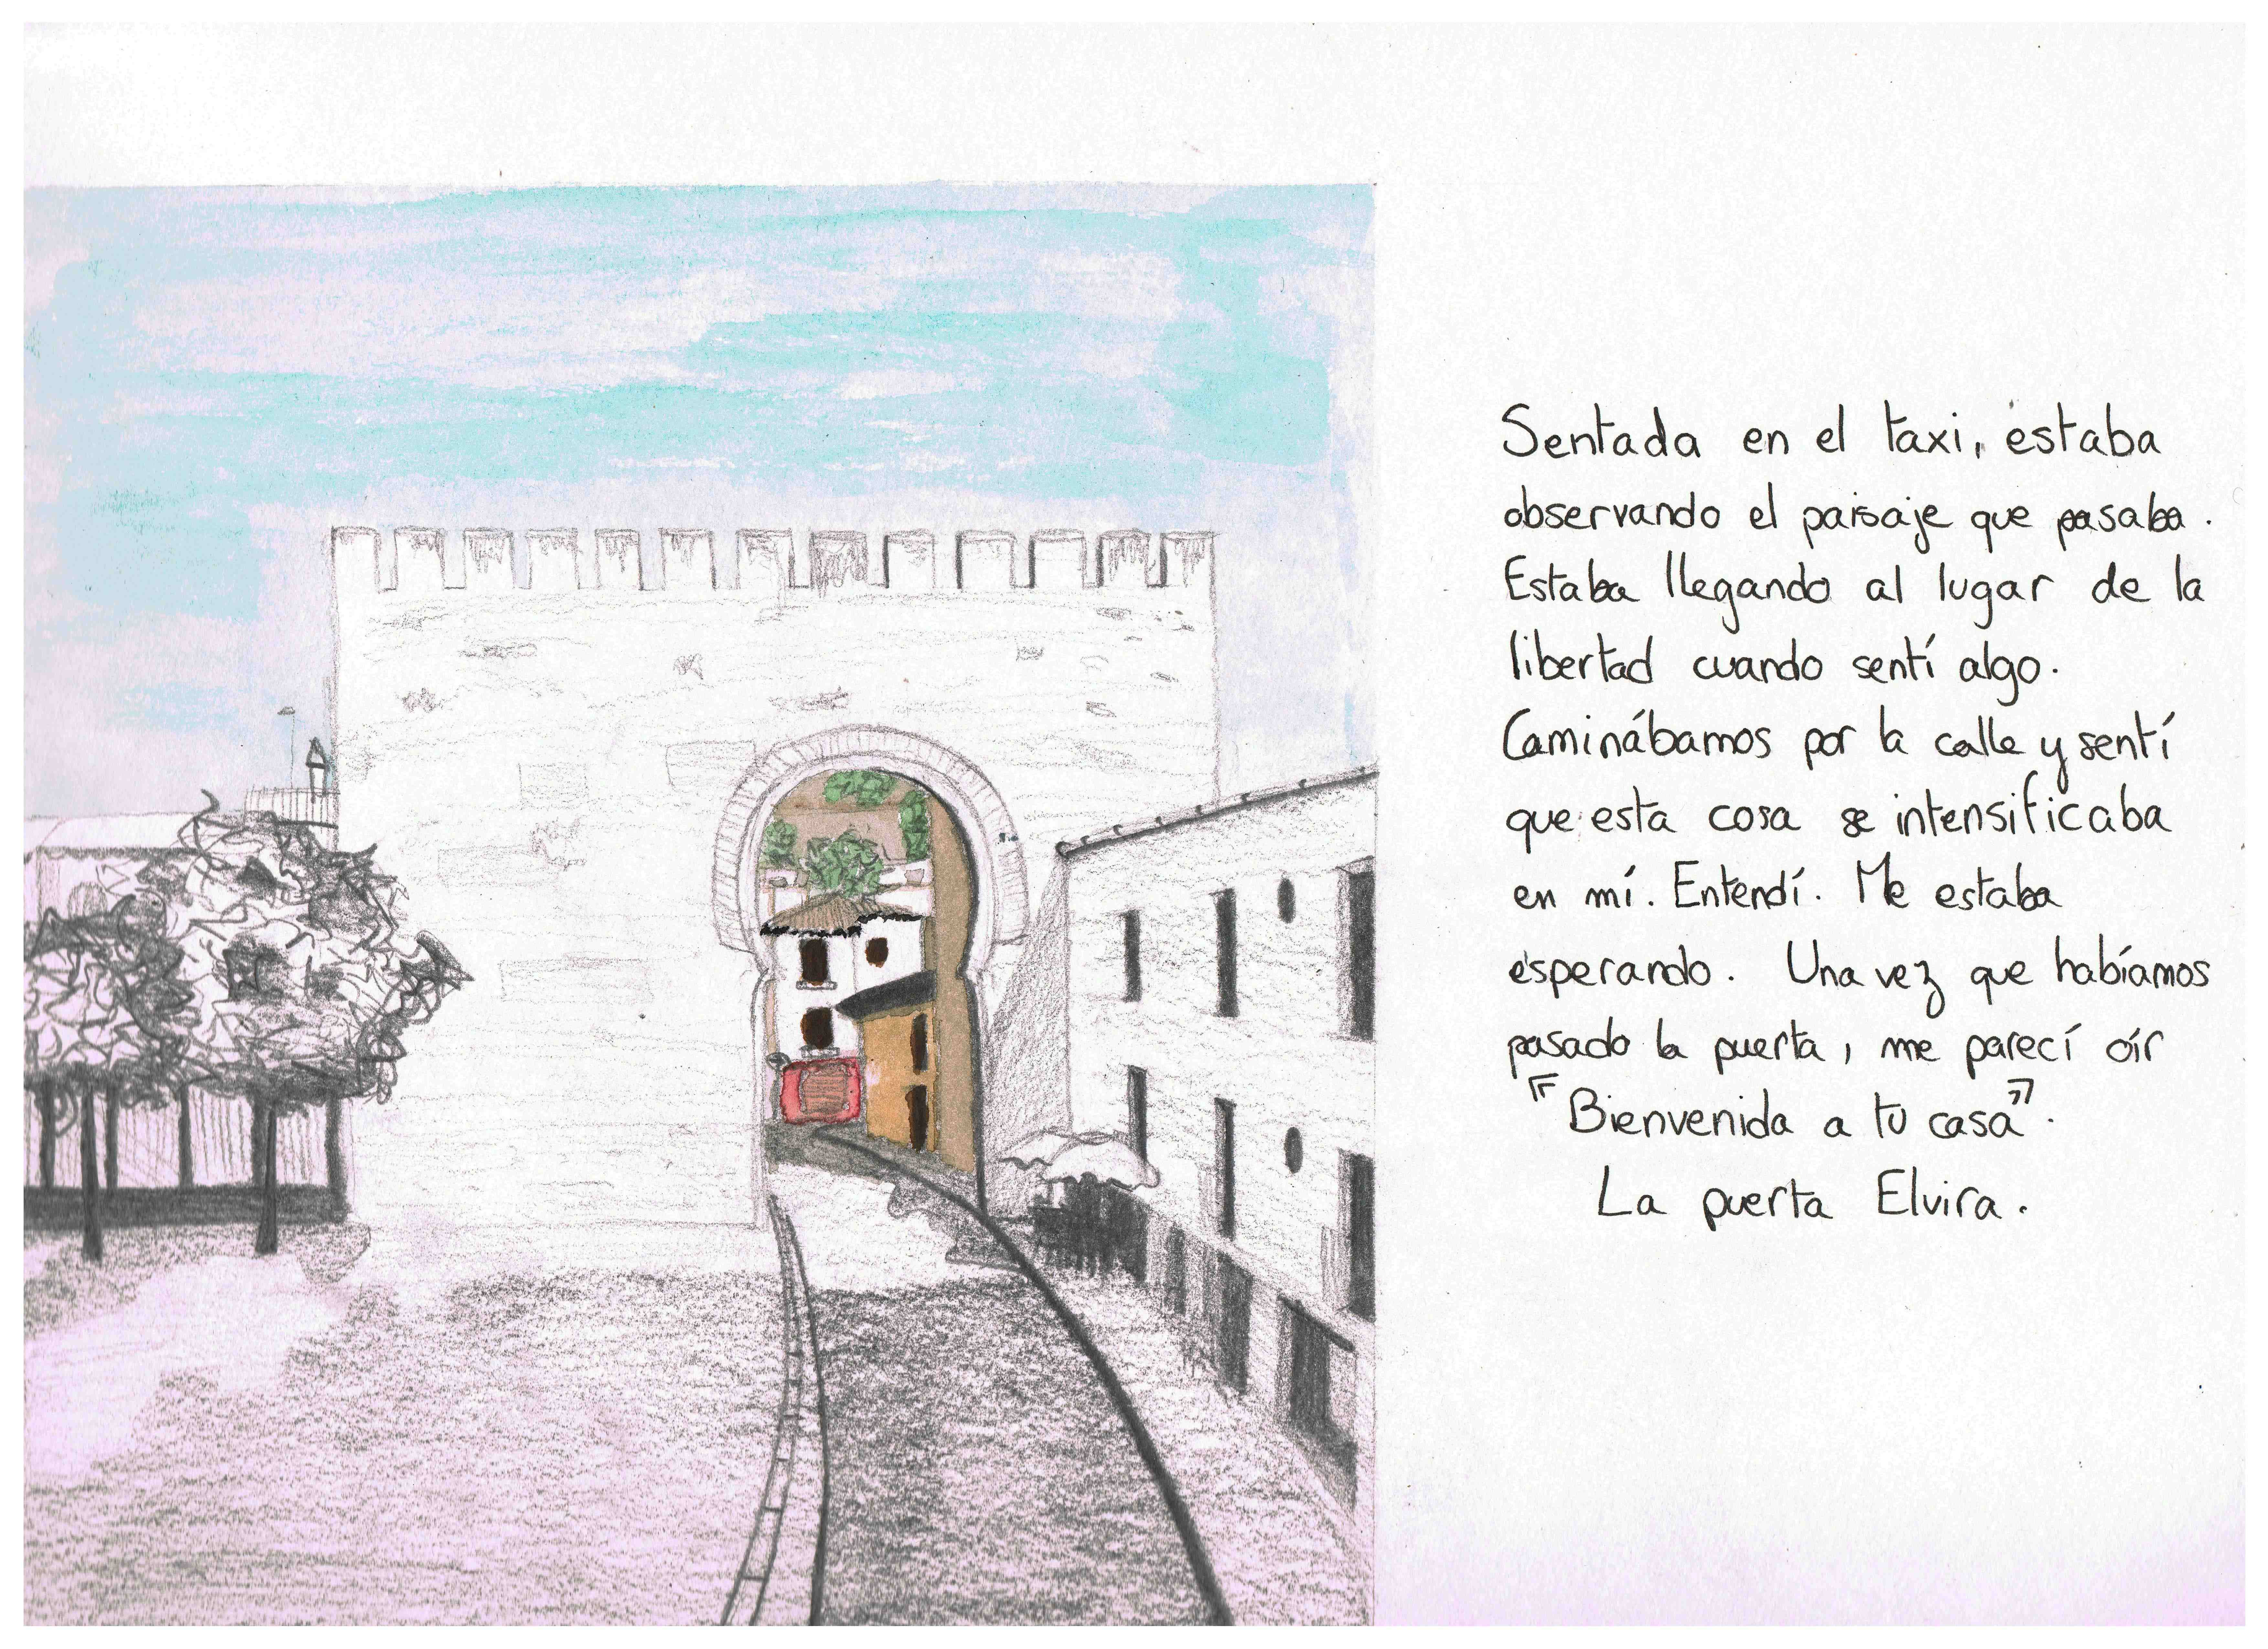 Sentada en el taxi, estaba
observando el paisaje que pasaba.
Estaba llegando al lugar de la
libertad cuando sentí algo.
Caminábamos por la calle y sentí
que esta cosa se intensificaba
en mí. Entendí. Me estaba
esperando. Una vez que habíamos
pasado la puerta, me parecí oír
"Bienvenida a tu casa".
La puerta Elvira.